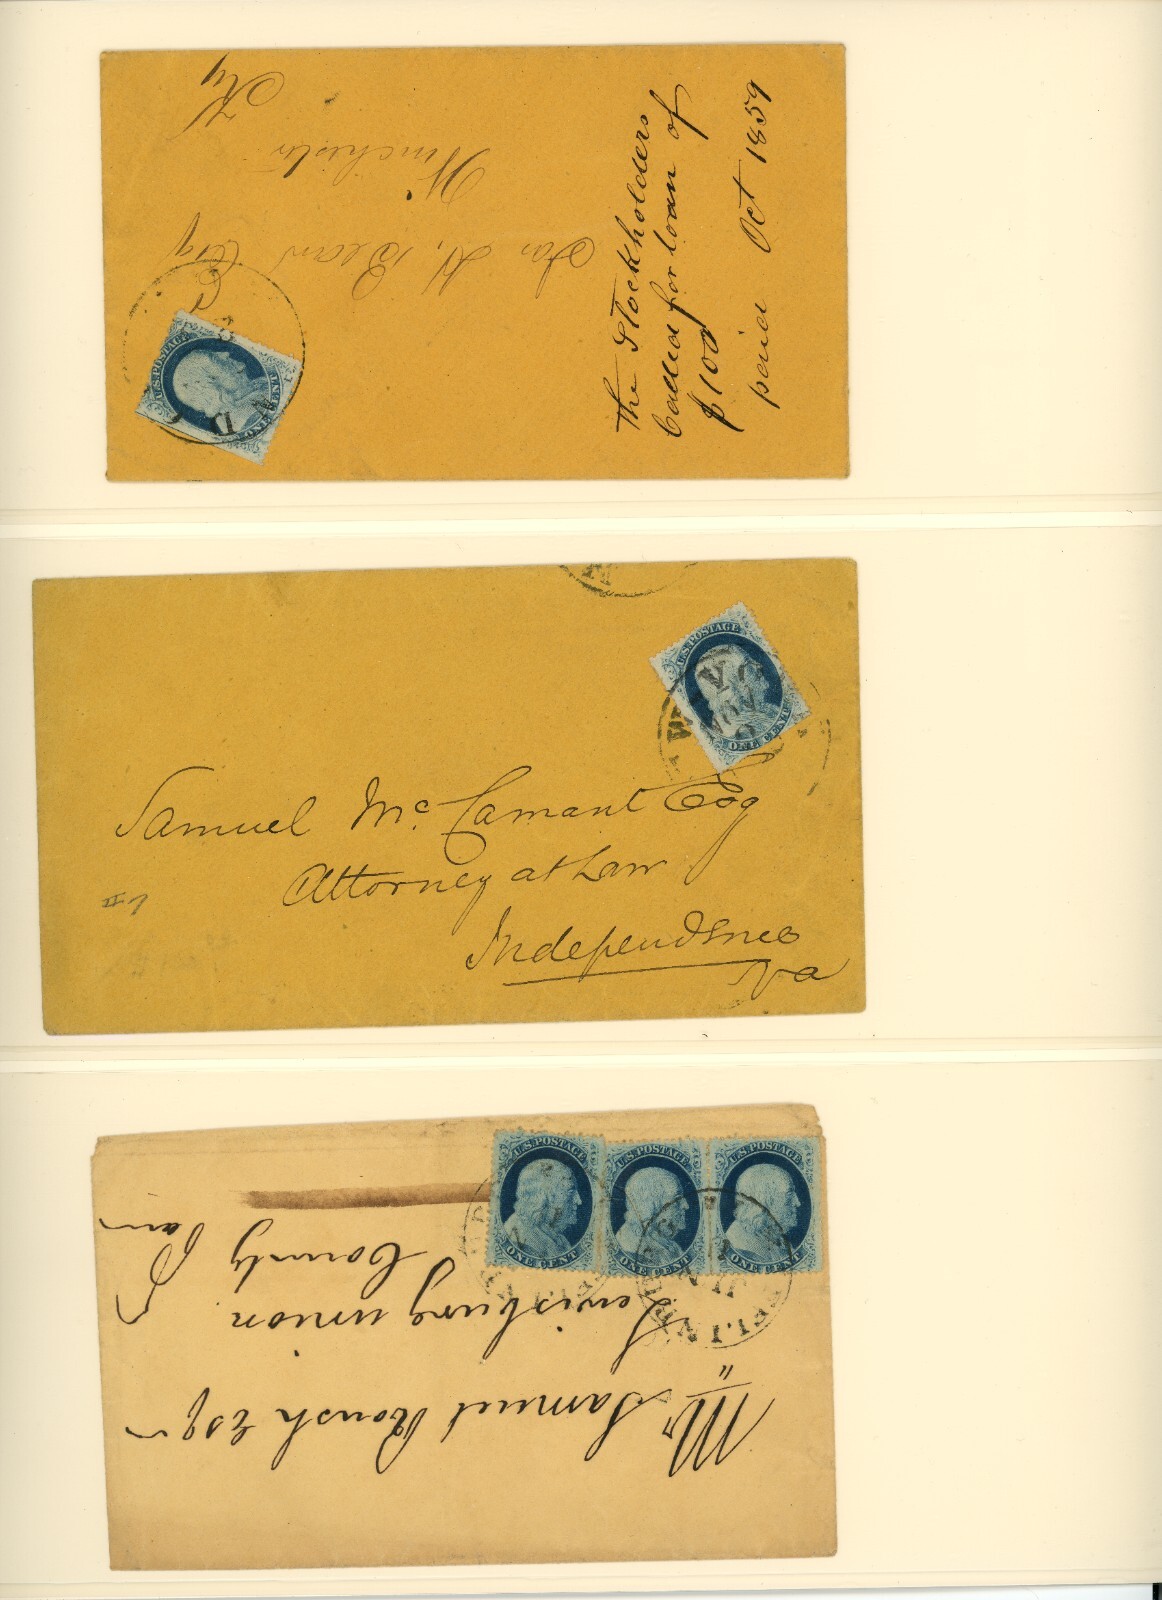 Jas. H. Bean Esq
Winchester
Ky
The Stockholders
Called for loan of
$100
paid Oct 1859
U.S. POSTAGE
ONE CENT
U.S. POSTAGE
ONE CENT
NOV
Samuel McCamant Esq
Attorney at Law
Independence
Va
U.S. POSTAGE
ONE CENT
U.S. POSTAGE
ONE CENT
U.S. POSTAGE
ONE CENT
Mr. Samuel Roush Esqr
Lewisburg union
County